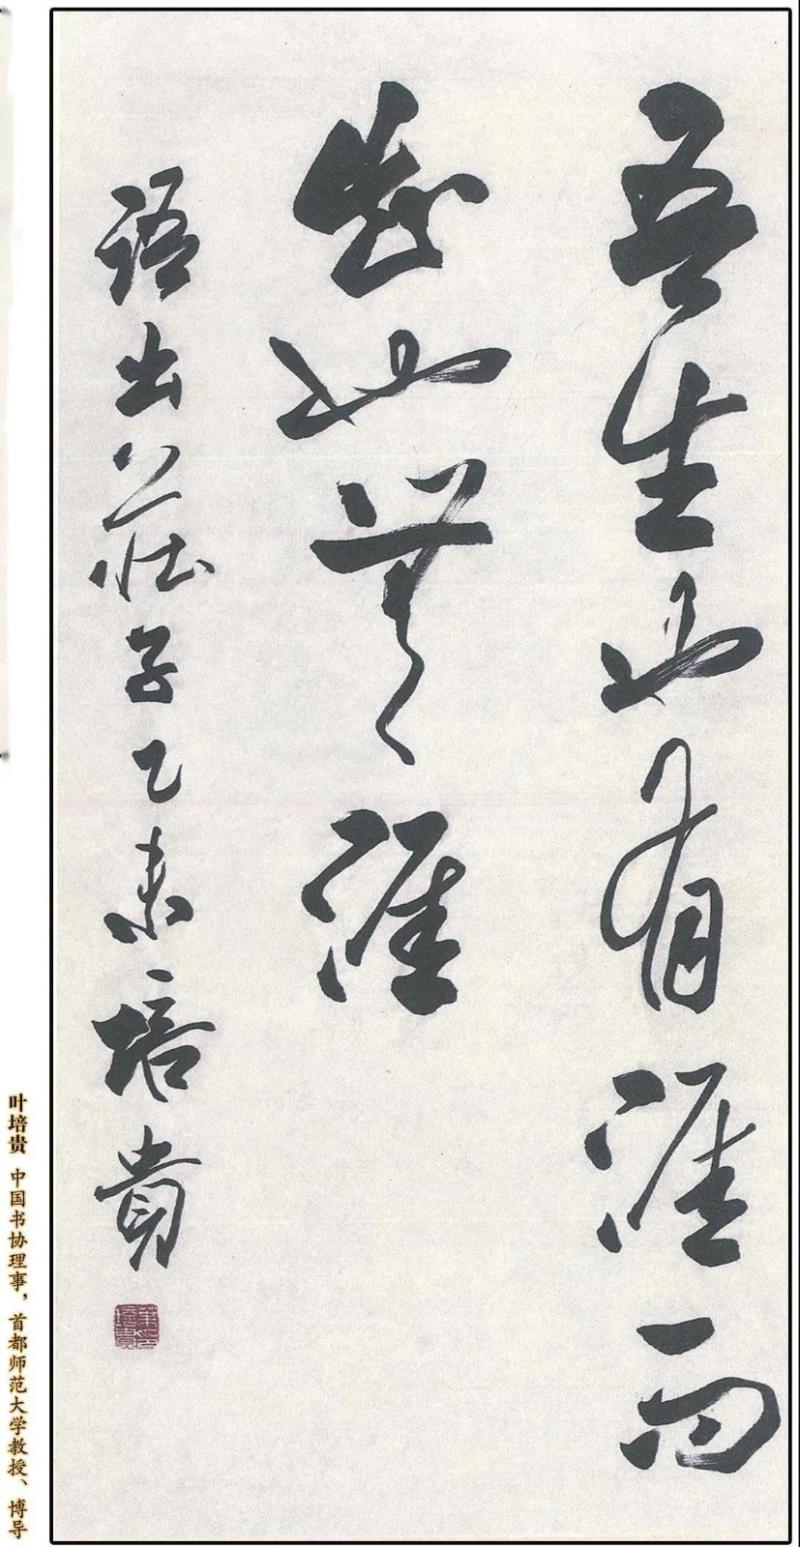 吾生也有涯而
知也無涯
語出莊子乙未培貴
叶培贵 中国书协理事，首都师范大学教授、博导